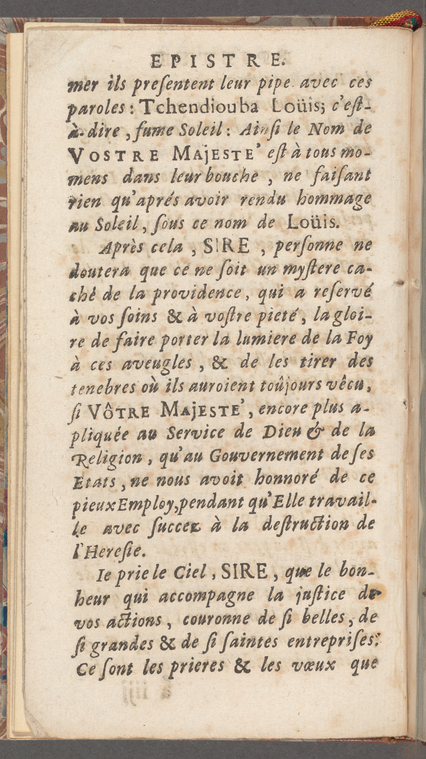 EPISTRE.
mer ils presentent leur pipe avec ces
paroles : Tchendiouba Loüis; c'est-
à-dire, fume Soleil : Ainsi le Nom de
VOSTRE MAjESTE' est à tous mo-
mens dans leur bouche, ne faisant
rien qu'aprés avoir rendu hommage
au Soleil, sous ce nom de Loüis.
Après cela, SIRE, personne ne
doutera que ce ne soit un mystere ca-
ché de la providence, qui a reservé
à vos soins & à vostre pieté, la gloi-
re de faire porter la lumiere de la Foy
à ces aveugles, & de les tirer des
tenebres où ils auroient toûjours vêcu,
si VÔTRE MAjESTE', encore plus a-
pliquée au Service de Dieu & de la
Religion, qu'au Gouvernement de ses
Etats, ne nous avoit honnoré de ce
pieux Employ, pendant qu'Elle travail-
le avec succez à la destruction de
l'Heresie.
Ie prie le Ciel, SIRE, que le bon-
heur qui accompagne la justice de
vos actions, couronne de si belles, de
si grandes & de si saintes entreprises:
Ce sont les prieres & les vœux que